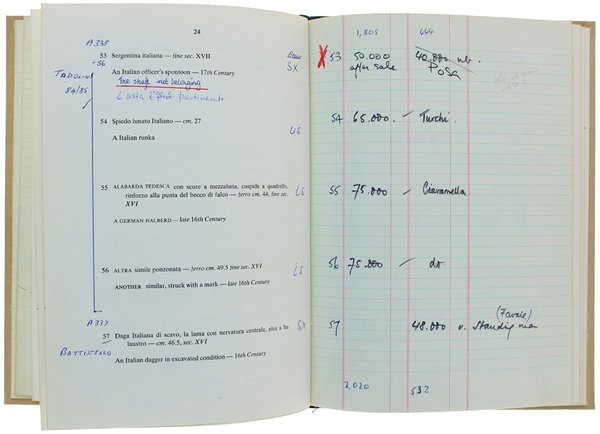 24
A338
53 Sergentina italiana — fine sec. XVII
-56
SX
An Italian officer's spontoon — 17th Century
The shaft not belonging.
L'asta è pertinente
84/85
54 Spiedo lunato Italiano — cm. 27
A Italian runka
US
55 ALABARDA TEDESCA con scure a mezzaluna, cuspide a quadrello,
rinforzo alla punta del becco di falco — ferro cm. 44, fine sec.
XVI
iS
A GERMAN HALBERD — late 16th Century
56 ALTRA simile ponzonata — ferro cm. 49.5 fine sec. XVI
iS
ANOTHER similar, struck with a mark — late 16th Century
A337
57 Daga Italiana di scavo, la lama con nervatura centrale, elsa a ba-
laustro — cm. 46.5, sec. XVI
SX
BATTISTINO
An Italian dagger in excavated condition — 16th Century
1,805 444
X 53 50.000 40.000 nb.
after sale Posa
54 65.000. — Turchi.
55 75.000 — Ciaranella
56 75.000 — do
(Favale)
57 48.000 v. Standing man
2,020 532